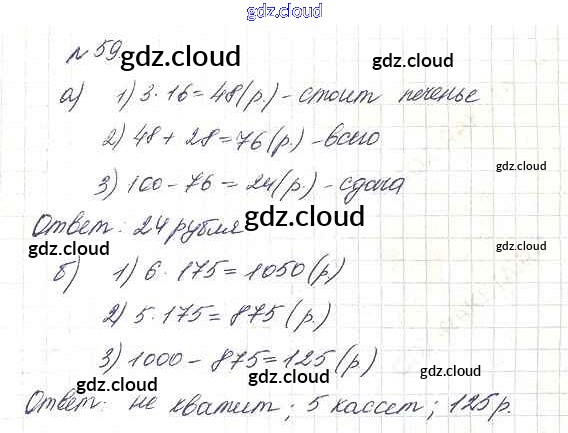 gdz.cloud
№ 59 gdz.cloud gdz.cloud
а) 1) 3·16=48(р.) - стоит печенье
2) 48 + 28=76(р.) - всего
gdz.cloud
3) 100 - 76 = 24(р.) - сдача
Ответ: 24 рубля gdz.cloud
gdz.cloud gdz.cloud
б) 1) 6·175=1050(р.)
2) 5·175=875(р.)
3) 1000 - 875=125(р.)
gdz.cloud gdz.cloud
Ответ: не хватит; 5 кассет; 125р.
gdz.cloud